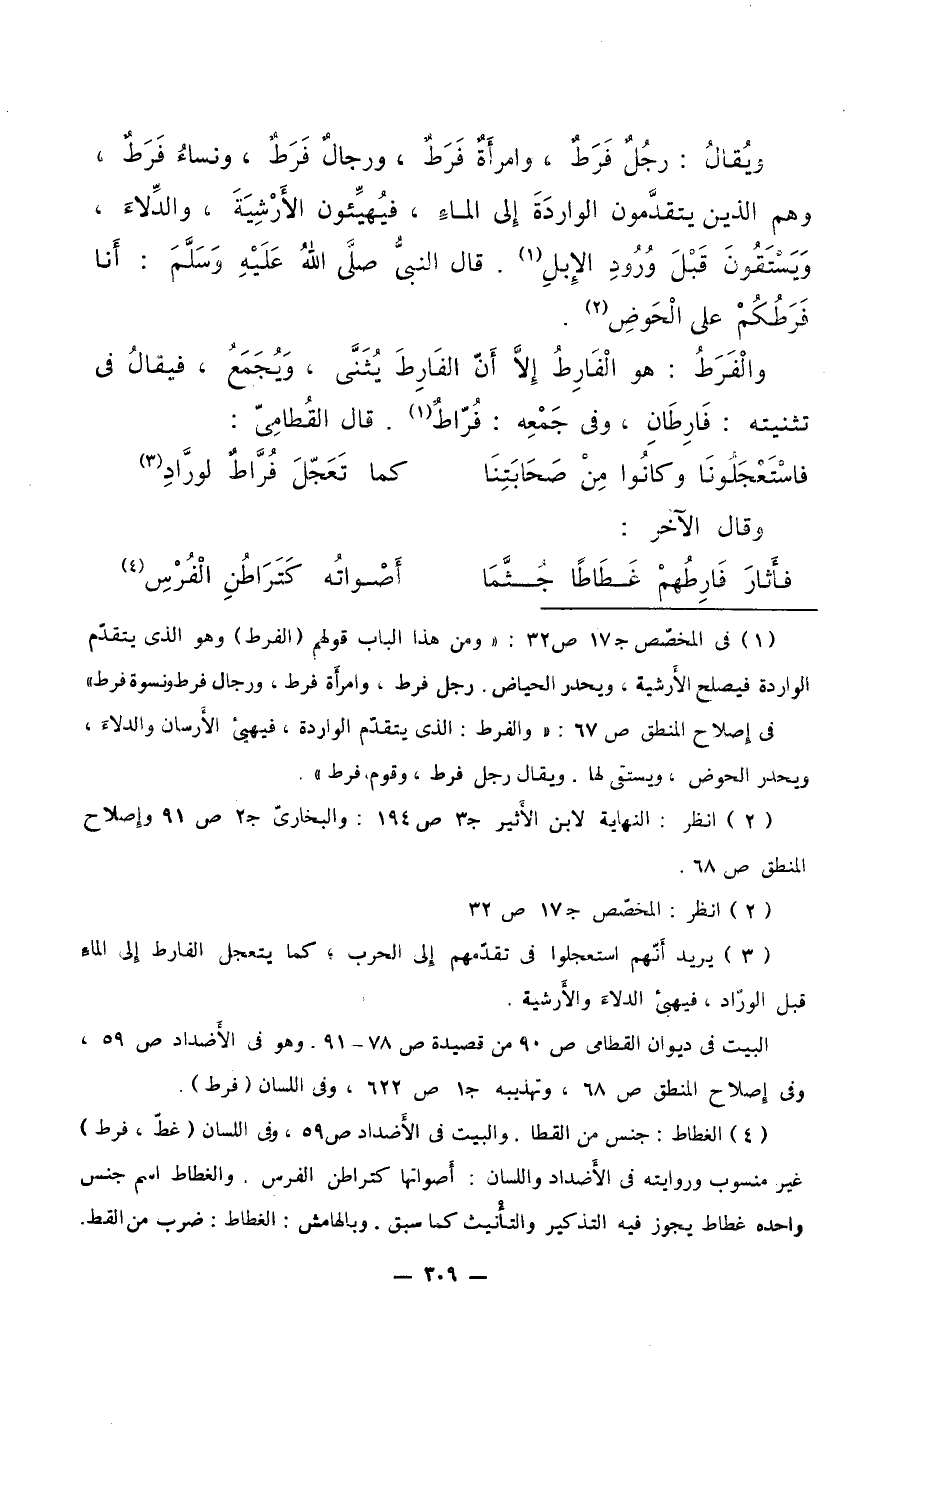 ويُقالُ : رجُلٌ فَرَطٌ ، وامرأةٌ فَرَطٌ ، ورجالٌ فَرَطٌ ، ونساءُ فَرَطٌ ،
وهم الذين يتقدَّمون الواردَةَ إلى الماءِ ، فيُهيِّئون الأَرْشِيَةَ ، والدِّلاءَ ،
وَيَسْتَقُونَ قَبْلَ وُرُودِ الإبلِ(١) . قال النبيُّ صلَّى اللهُ عَلَيْهِ وَسَلَّمَ : أَنا
فَرَطُكُمْ على الْحَوضِ(٢) .
والْفَرَطُ : هو الْفَارِطُ إلاَّ أَنّ الفَارِطَ يُثَنَّى ، وَيُجَمَعُ ، فيقالُ فى
تثنيته : فَارِطَانِ ، وفى جَمْعِه : فُرّاطٌ(١) . قال القُطامِىّ :
فاسْتَعْجَلُونَا وكانُوا مِنْ صَحَابَتِنَا كما تَعَجّلَ فُرَّاطٌ لورَّادِ(٣)
وقال الآخر :
فـأَثارَ فَارِطُهمْ غَـطَاطًا جُـثَّمَا أَصْـواتُه كَتَرَاطُنِ الْفُرْسِ(٤)
(١) فى المخصّص ج١٧ ص٣٢ : « ومن هذا الباب قولهم (الفرط) وهو الذى يتقدّم
الواردة فيصلح الأَرشية ، ويحدر الحياض . رجل فرط ، وامرأَة فرط ، ورجال فرط ونسوة فرط»
فى إصلاح المنطق ص ٦٧ : « والفرط : الذى يتقدّم الواردة ، فيهيئ الأَرسان والدلاءَ ،
ويحدر الحوض ، ويستقى لها . ويقال رجل فرط ، وقوم فرط » .
(٢) انظر : النهاية لابن الأَثير ج٣ ص ١٩٤ : والبخارىّ ج٢ ص ٩١ وإصلاح
المنطق ص ٦٨ .
(٢) انظر : المخصّص ج١٧ ص ٣٢
(٣) يريد أَنّهم استعجلوا فى تقدّمهم إلى الحرب ؛ كما يتعجل الفارط إلى الماء
قبل الورّاد ، فيهيئ الدلاءَ والأَرشية .
البيت فى ديوان القطامى ص ٩٠ من قصيدة ص ٧٨ – ٩١ . وهو فى الأَضداد ص ٥٩ ،
وفى إصلاح المنطق ص ٦٨ ، وتهذيبه ج١ ص ٦٢٢ ، وفى اللسان (فرط) .
(٤) الغطاط : جنس من القطا . والبيت فى الأَضداد ص٥٩ ، وفى اللسان (غطّ ، فرط)
غير منسوب وروايته فى الأَضداد واللسان : أَصواتها كتراطن الفرس . والغطاط اسم جنس
واحده غطاط يجوز فيه التذكير والتأْنيث كما سبق . وبالهامش : الغطاط : ضرب من القط.
— ٣٠٩ —